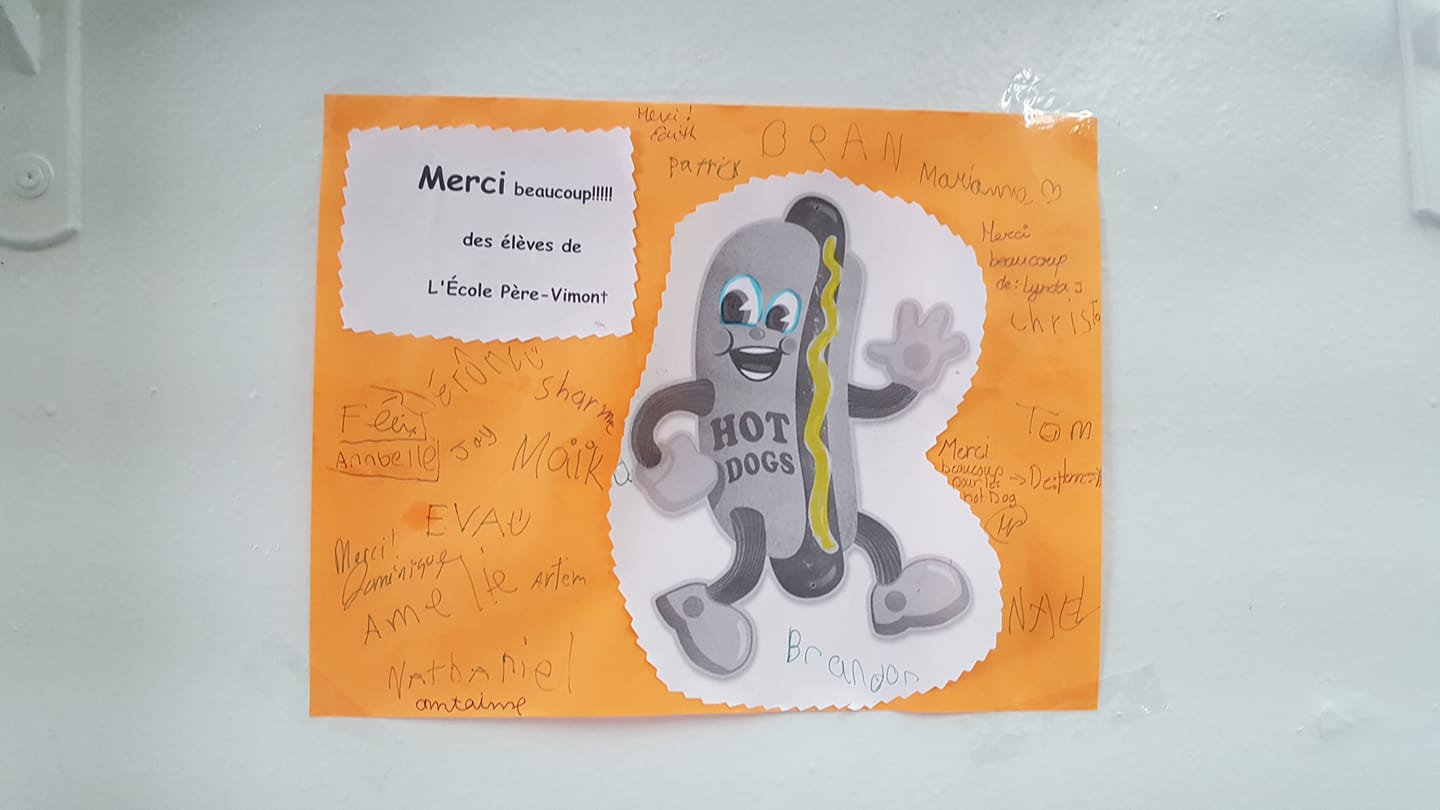 Merci beaucoup!!!!!
des élèves de
L'École Père-Vimont
Merci!
Patrick
BRAN
Marianne
Merci
beaucoup
de: Lynda
Christo
HOT
DOGS
Tom
Merci
beaucoup
pour les
hot Dog
NAEL
Brandon
Jérôme
Sharme
Félix
Annbelle
Jay
Maïka
EVA
Merci!
Dominique
Amelie
Artem
Nathaniel
antaine